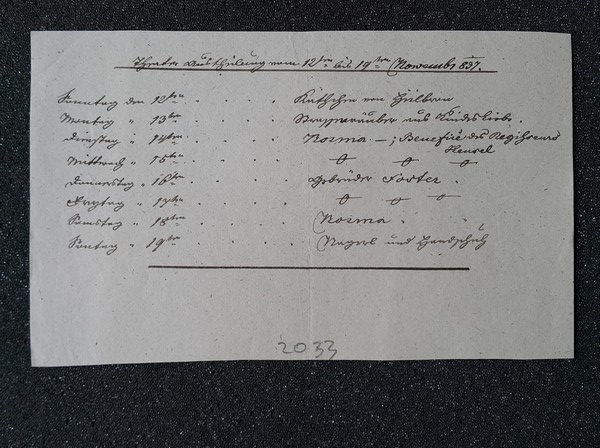 Theater Austheilung vom 12ten bis 19ten Novembr 837.
Sonntag den 12ten . . . . Käthchen von Heilbron
Montag " 13ten . . . . Strassenräuber aus Kindesliebe.
Dienstag " 14ten . . . . Norma —; Benefice des Regisseurs Hensel
Mittwoch " 15ten . . . .
Donnerstag " 16ten . . . . Gebrüder Foster .
Freytag " 17ten . . . .
Samstag " 18ten . . . . Norma .
Sontag " 19ten . . . . und Handschuh
2033